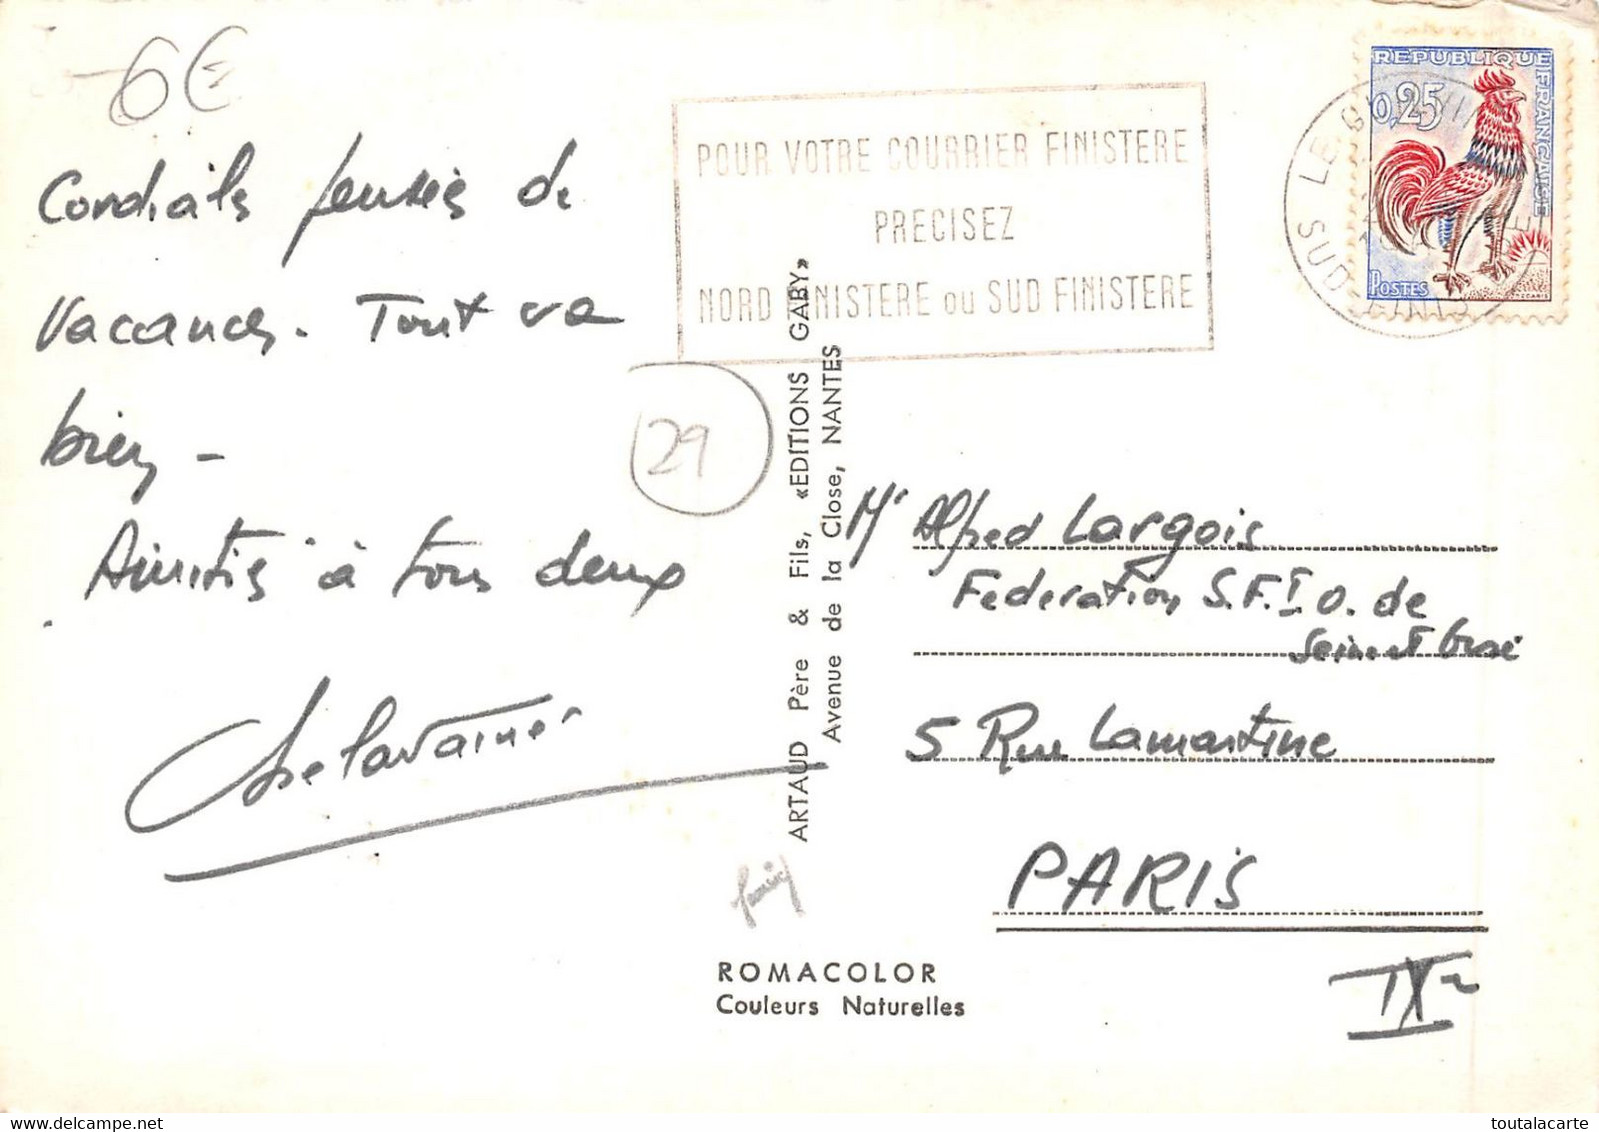 6€
Cordiales pensées de
Vacances. Tout va
bien -
Amitiés à tous deux
Delavaine
29
POUR VOTRE COURRIER FINISTERE
PRECISEZ
NORD FINISTERE ou SUD FINISTERE
REPUBLIQUE FRANÇAISE
0,25
POSTES
LE G
SUD
ARTAUD Père & Fils, «EDITIONS GABY»
Avenue de la Close, NANTES
Mr Alfred Largois
Federation S.F.I.O. de
Seine et Oise
5 Rue Lamartine
PARIS
IXe
ROMACOLOR
Couleurs Naturelles
toutalacarte